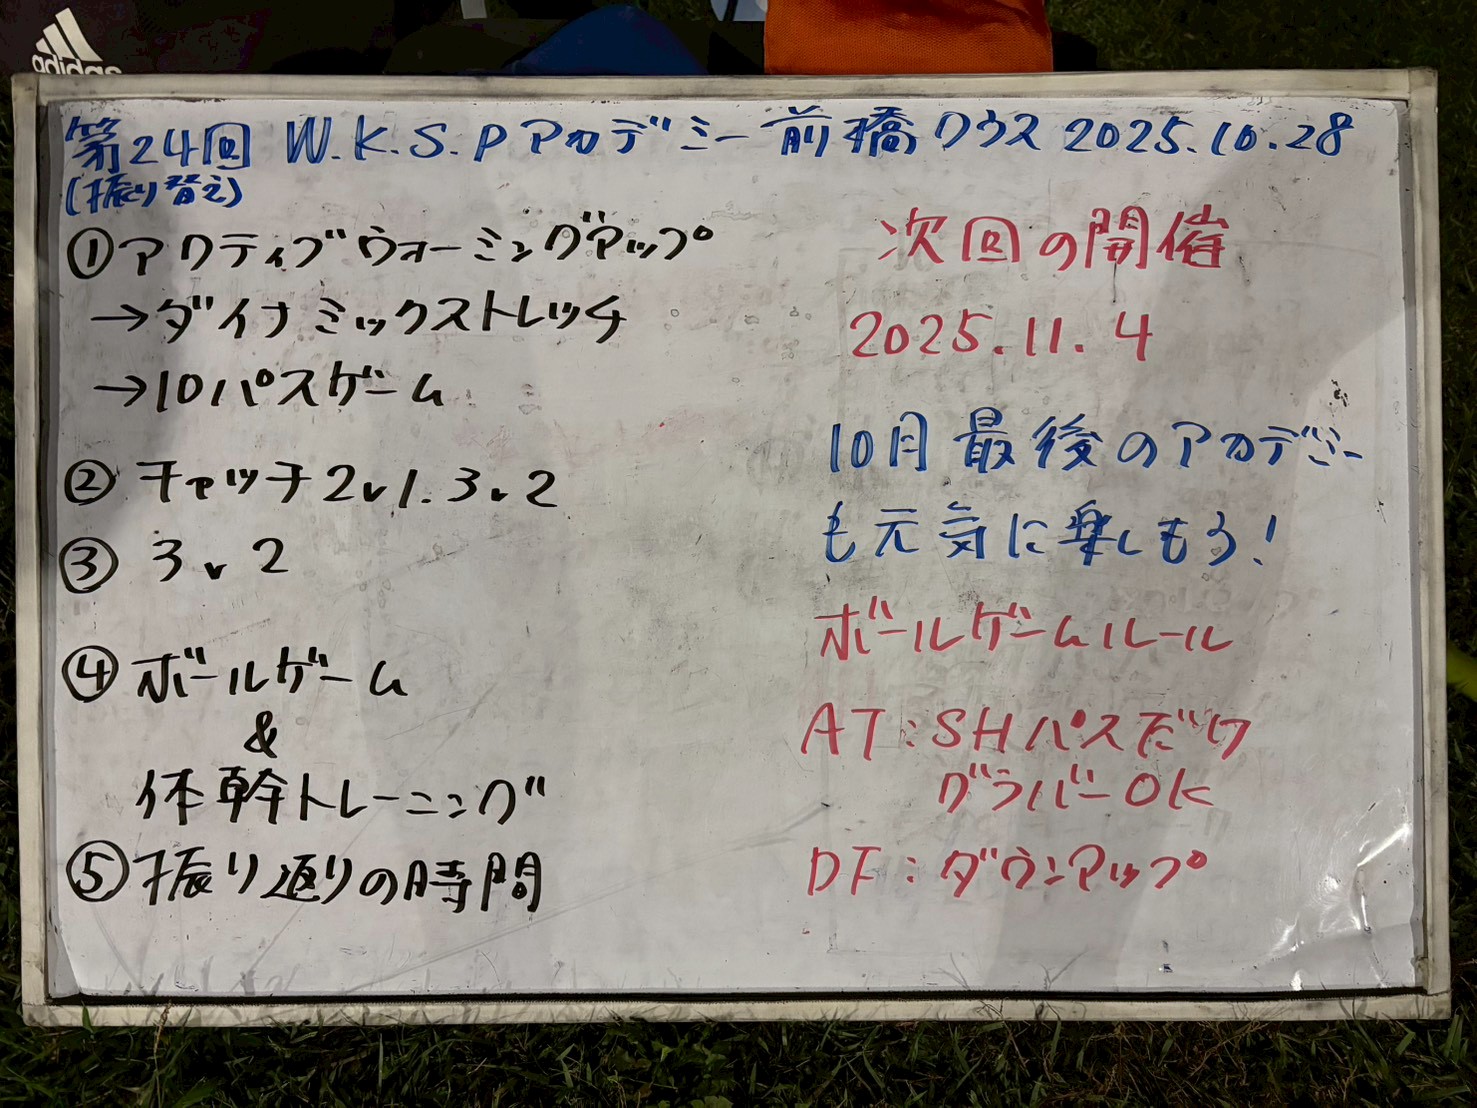 adidas
第24回 W.K.S.Pアカデミー前橋クラス 2025.10.28
(振り替え)
①アクティブウォーミングアップ
→ダイナミックストレッチ
→10パスゲーム
②チャッチ2v1.3v2
③ 3v2
④ボールゲーム
&
体幹トレーニング
⑤振り返りの時間
次回の開催
2025.11.4
10月最後のアカデミー
も元気に楽しもう!
ボールゲームルール
AT:SHパスだけ
グラバーOK
DF:ダウンアップ